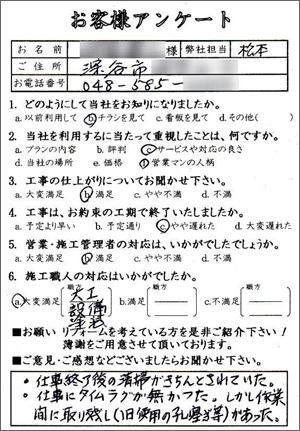 お客様アンケート
お名前 様 弊社担当 松本
ご住所 深谷市
お電話番号 048-585-
1. どのようにして当社をお知りになりましたか。
a.以前利用して b.チラシを見て c.看板を見て d.その他( )
2. 当社を利用するに当たって重視したことは、何ですか。
a.プランの内容 b.評判 c.サービスや対応の良さ
d.当社の場所 e.価格 f.営業マンの人柄
3. 工事の仕上がりについてお聞かせ下さい。
a.大変満足 b.満足 c.やや不満 d.不満
4. 工事は、お約束の工期で終了いたしましたか。
a.予定より早い b.予定通り c.やや遅れた d.大変遅れた
5. 営業・施工管理者の対応は、いかがでしたでしょうか。
a.大変満足 b.満足 c.やや不満 d.不満
6. 施工職人の対応はいかがでしたか。
a.大変満足 職方 大工 設備 塗装 b.満足 職方 c.不満足 職方
■お願い リフォームを考えている方を是非ご紹介下さい！
薄謝をご用意させて頂いております。
■ご意見・ご感想などございましたらお聞かせ下さい。
・仕事終了後の清掃がきちんとされていた。
・仕事にタイムラグが無かつた。しかし作業
間に取り残し(旧使用の孔塞ぎ等)があった。